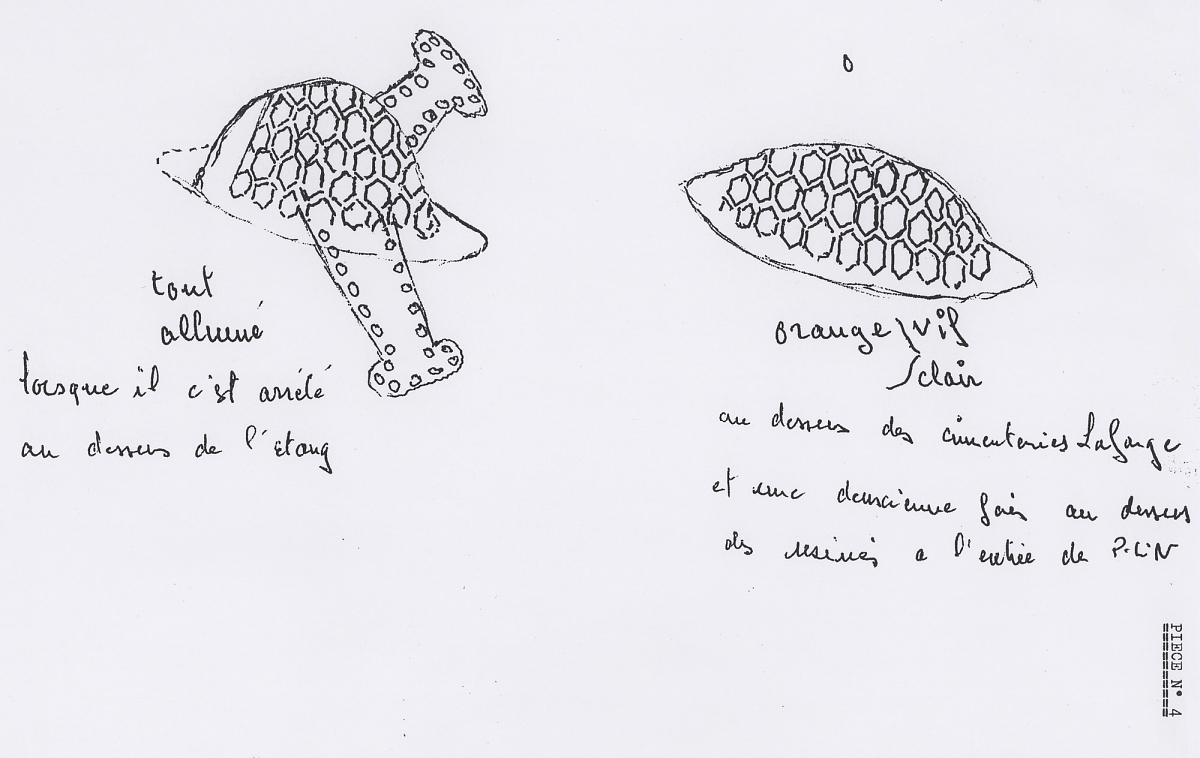 tout
allumé
lorsque il c'st arrété
au dessus de l'étang
orange vif
clair
au dessus des cimenteries Lafarge
et une deuxieme fois au dessus
des usines a l'entrée de P-L-N
PIECE N° 4